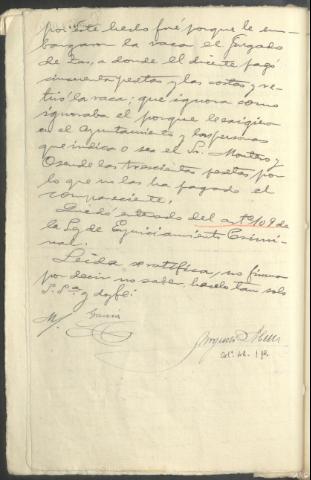 por este hecho fué porque le em-
bargaron la vaca el Juzgado
de Las, a donde el dicente pagó
cincuenta pesetas y las costas y re-
tiró la vaca; que ignora como
ignoraba el porque le exigieron
en el Ayuntamiento y las personas
que indica o sea el Sr. Monteso y
Osende las trescientas pesetas por
lo que no las ha pagado el
compareciente.
Quedó enterado del artº. 109 de
la Ley de Enjuiciamiento Crimi-
nal.
Leida se ratifica, no firma
por decir no saber, hacelo tan solo
S. Sª. y doy fé: